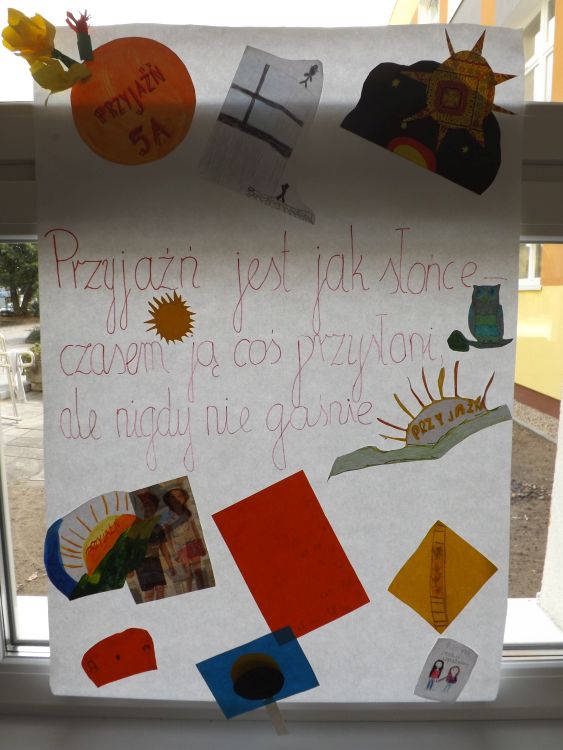 PRZYJAŹŃ
5A
Przyjaźń jest jak słońce -
czasem ją coś przysłoni,
ale nigdy nie gaśnie
PRZYJAŹŃ
PRZYJAŹŃ